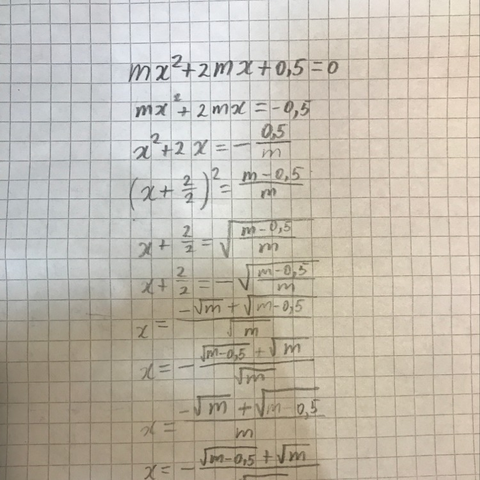 mx²+2mx+0,5=0
mx²+2mx=-0,5
x²+2x=-0,5/m
(x+2/2)²=(m-0,5)/m
x+2/2=√((m-0,5)/m)
x+2/2=-√((m-0,5)/m)
x=(-√m+√(m-0,5))/√m
x=-(√(m-0,5)+√m)/√m
x=(-√m+√(m-0,5))/m
x=-(√(m-0,5)+√m)/